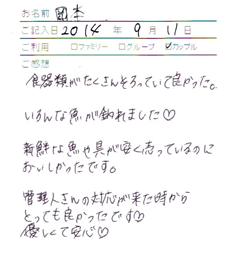 お名前 岡本
ご記入日 2014 年 9 月 11 日
ご利用 □ファミリー □グループ ☑カップル
ご感想
食器類がたくさんそろっていて良かった。
いろんな魚が釣れました♡
新鮮な魚や貝が安く売っているのに
おいしかったです。
管理人さんの対応が来た時から
とっても良かったです♡
優しくて安心♡